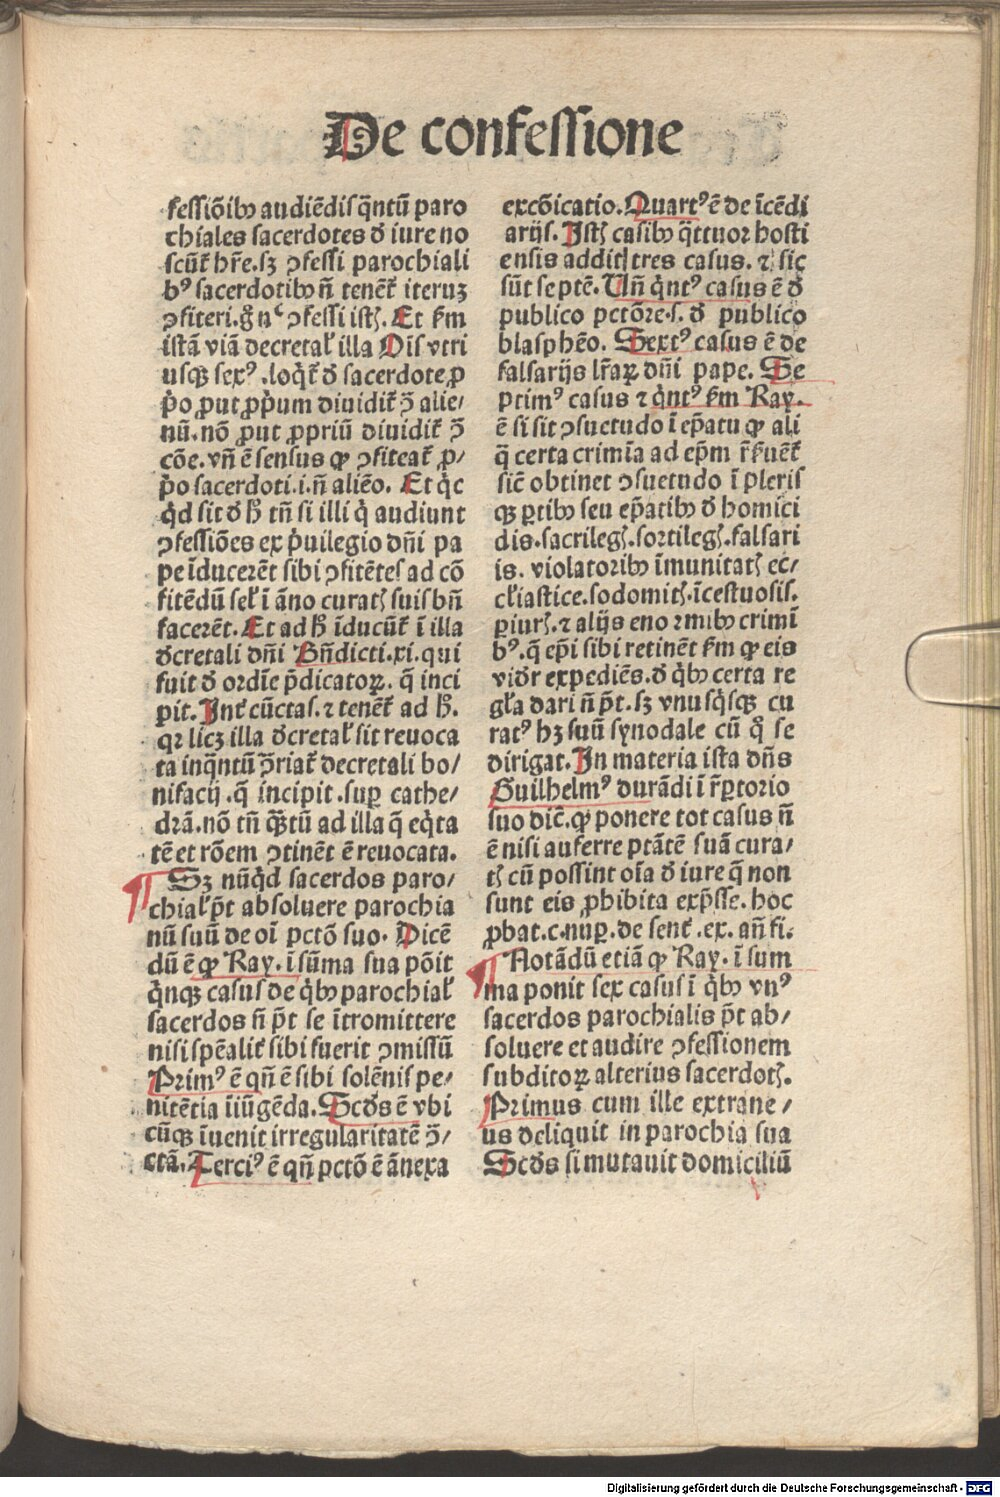 De confessione
fessiōibꝰ audiēdis q̄ntū paro
chiales sacerdotes d̓ iure no
scūt̄ hr̄e. sꝫ ꝯfessi parochiali
bꝰ sacerdotibꝰ n̄ tenēt̄ iteruꝫ
ꝯfiteri. g̊ nᶜ ꝯfessi istꝭ. Et ẜm
istā viā decretal̓ illa Oīs vtri
usqꝫ sexꝰ. loq̇t̄ d̓ sacerdote ꝓ
p̓o ꝓut ꝓp̓um diuidit̄ ꝯ̄ alie/
nū. nō ꝓut ꝓpriū diuidit̄ ꝯ̄
cōe. vn̄ ē sensus ꝙ ꝯfiteat̄ ꝓ/
p̓o sacerdoti. i. n̄ aliēo. Et q̇c
q̇d sit d̓ ħ tn̄ si illi q̇ audiunt
ꝯfessiōes ex p̓uilegio dn̄i pa
pe īducerēt sibi ꝯfitētes ad cō
fitēdū sel̓ ī āno curatꝭ suis bn̄
facerēt. Et ad ħ īducūt̄ ī illa
d̓cretali dn̄i Bn̄dicti. xi. qui
fuit d̓ ordīe p̄dicatoꝝ. q̄ inci
pit. Int̓ cūctas. ⁊ tenēt̄ ad ħ.
qꝛ licꝫ illa d̓cretal̓ sit reuoca
ta inq̄ntū ꝯ̄riat̄ decretali bo/
nifacij. q̄ incipit. suꝑ cathe/
drā. nō tn̄ q̄̊tū ad illa q̄ eq̇ta
tē et rōem ꝯtinēt ē reuocata.
¶ Sꝫ nūq̇d sacerdos paro/
chial̓ pt̄ absoluere parochia
nū suū de oī pctō suo. Dicē
dū ē ꝙ Ray. ī sūma sua pōit
q̇nqꝫ casus de q̇bꝰ parochial̓
sacerdos n̄ pt̄ se ītromittere
nisi spēalit̓ sibi fuerit ꝯmissū
Primꝰ ē qn̄ ē sibi solēnis pe/
nitētia iīūgēda. Scd̓s ē vbi
cūqꝫ īuenit irregularitatē ꝯ̄/
ctā. Terciꝰ ē qn̄ pctō ē ānexa
excōicatio. Quartꝰ ē de īcēdi
arijs. Istꝭ casibꝰ q̄ttuor hosti
ensis addit̄ tres casus. ⁊ sic
sūt septē. Un̄ q̇ntꝰ casus ē d̓
publico pctōre. s. d̓ publico
blasphēo. Sextꝰ casus ē de
falsarijs lr̄aꝝ dn̄i pape. Se
ptimꝰ casus ⁊ q̇ntꝰ ẜm Ray.
ē si sit ꝯsuetudo ī ep̄atu ꝙ ali
q̄ certa crimīa ad ep̄m r̄ẜuēt̄
sic̄ obtinet ꝯsuetudo ī pleris
qꝫ ꝑtibꝰ seu ep̄atibꝰ d̓ homici
dis. sacrilegꝭ. sortilegꝭ. falsari
is. violatoribꝰ īmunitatꝭ ec/
cl̓iastice. sodomitꝭ. īcestuosis.
ꝑiurꝭ. ⁊ alijs enormibꝰ crimī
bꝰ. q̄ ep̄i sibi retinēt ẜm ꝙ eis
vid̓r expediēs. d̓ q̇bꝰ certa re
gl̓a dari n̄ pt̄. sꝫ vnusq̇sqꝫ cu
ratꝰ hꝫ suū synodale cū q̊ se
dirigat. In materia ista dn̄s
Guilhelmꝰ durādi ī r̄ꝑtorio
suo dic̄. ꝙ ponere tot casus n̄
ē nisi auferre ptātē suā cura/
tꝭ cū possint oīa d̓ iure q̄ non
sunt eis ꝓhibita exp̄sse. hoc
ꝓbat. c. nuꝑ. de sent̄. ex. an̄ fi.
¶ Notādū etiā ꝙ Ray. ī sum
ma ponit sex casus ī q̇bꝰ vnꝰ
sacerdos parochialis pt̄ ab/
soluere et audire ꝯfessionem
subditoꝝ alterius sacerdotꝭ.
Primus cum ille extrane/
us deliquit in parochia sua
Scd̓s si mutauit domiciliū
Digitalisierung gefördert durch die Deutsche Forschungsgemeinschaft - DFG